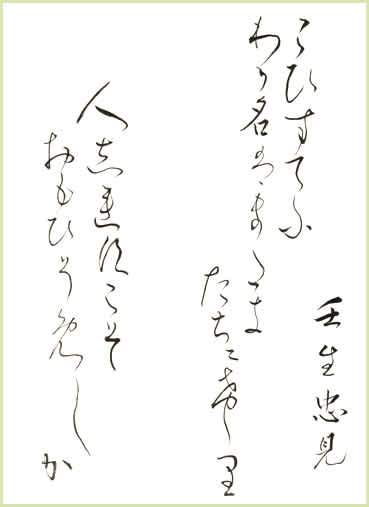 壬生忠見
こひすてふ
わか名はまたき
たちにけり
人しれすこそ
おもひそめしか